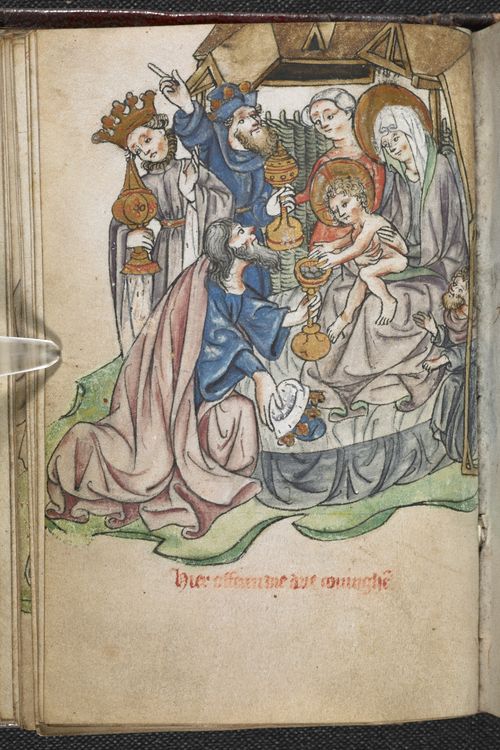 Hier offeren die drie coninghē